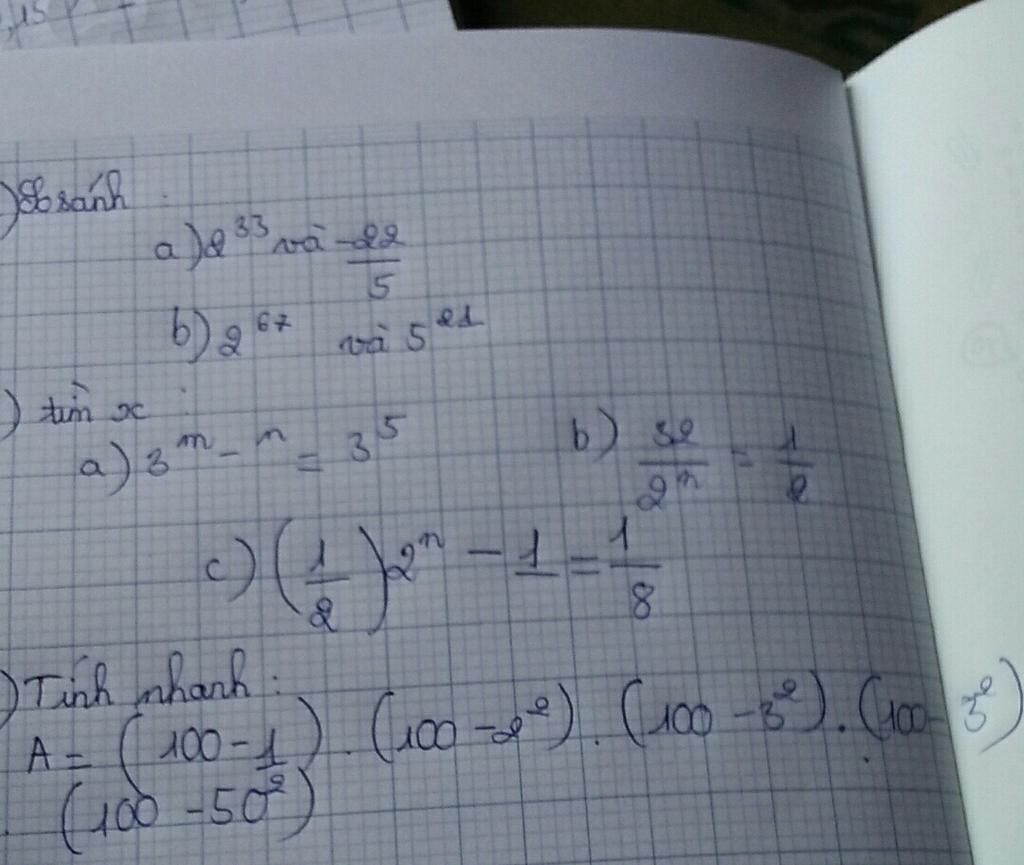 ) So sánh :
a) 2^33 và -22/5
b) 2^67 và 5^21
) tìm x :
a) 3^m - n = 3^5 b) 32/2^n = 1/2
c) (1/2) 2^n - 1 = 1/8
) Tính nhanh :
A = (100 - 1) . (100 - 2^2) . (100 - 3^2) . (100 - 3^2)
(100 - 50^2)